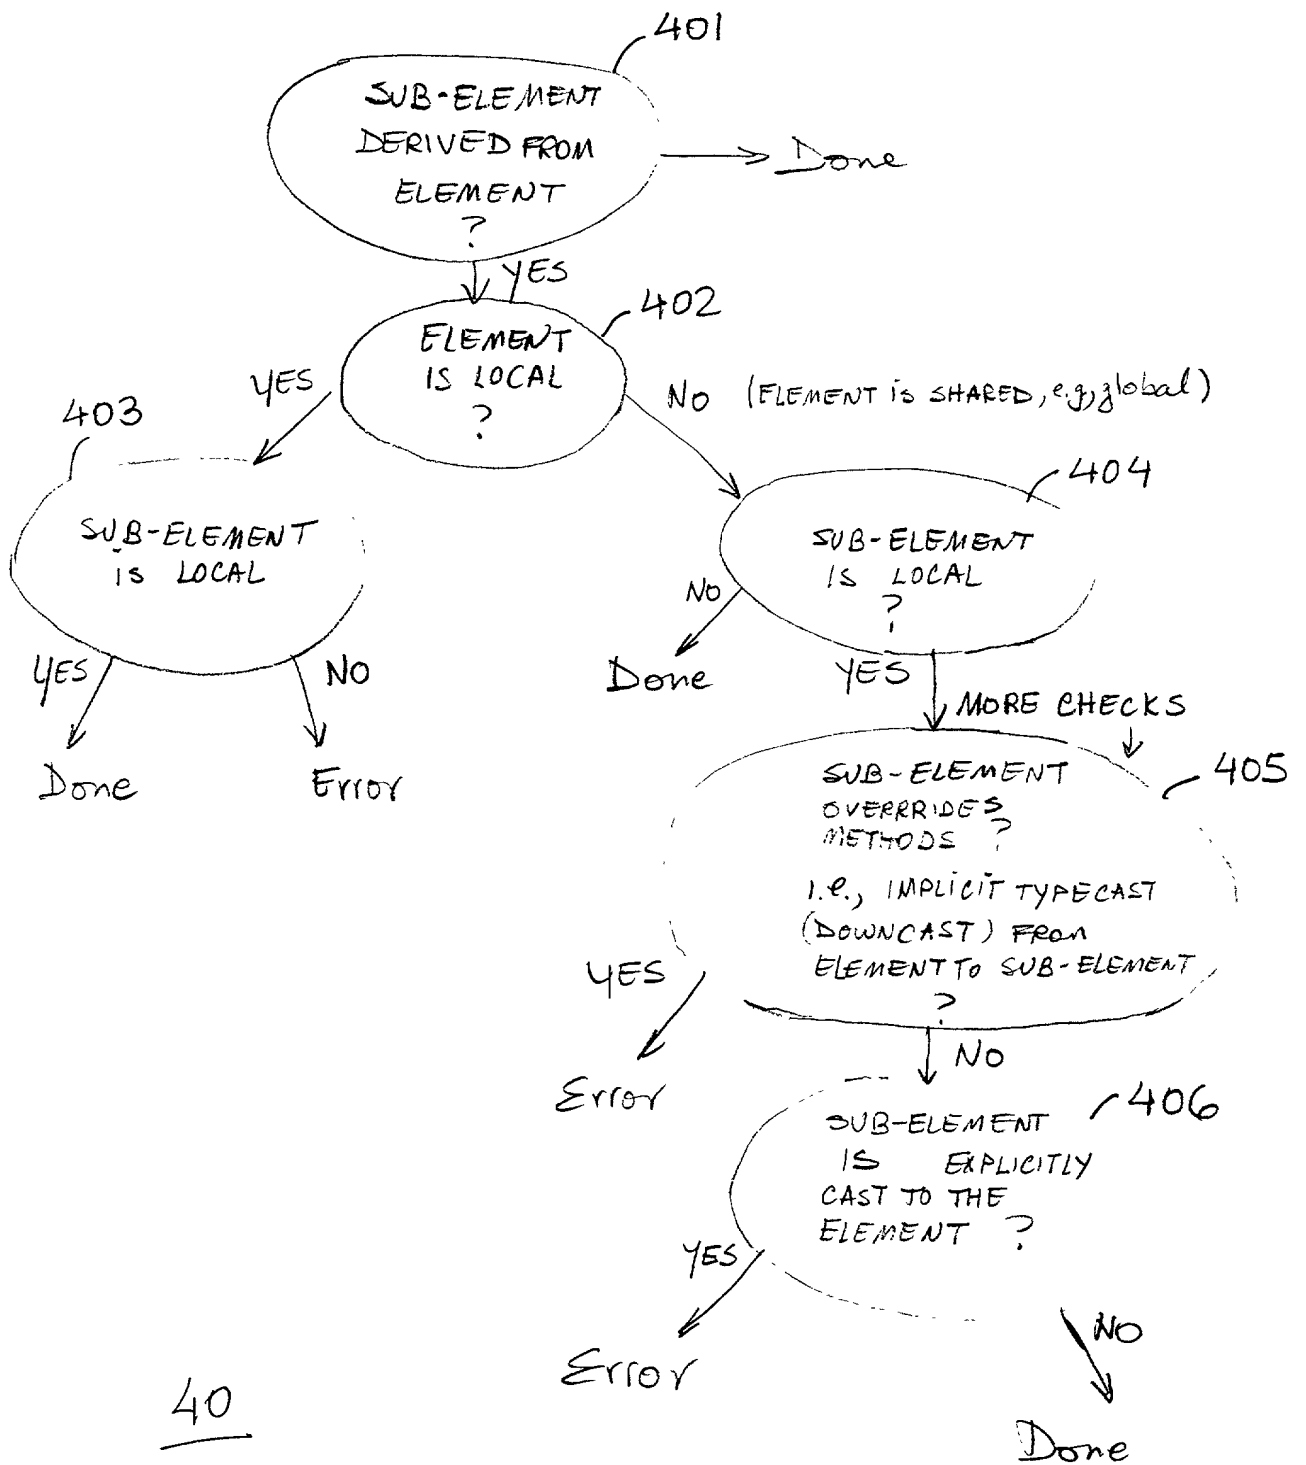 401
SUB-ELEMENT
DERIVED FROM
ELEMENT
?
Done
YES
402
ELEMENT
IS LOCAL
?
YES
NO (ELEMENT is SHARED, e.g, global)
403
404
SUB-ELEMENT
is LOCAL
SUB-ELEMENT
IS LOCAL
?
NO
YES
NO
Done
YES
MORE CHECKS
Done
Error
405
SUB-ELEMENT
OVERRRIDES
METHODS ?
i.e., IMPLICIT TYPECAST
(DOWNCAST) FROM
ELEMENT TO SUB-ELEMENT
?
YES
NO
Error
406
SUB-ELEMENT
IS EXPLICITLY
CAST TO THE
ELEMENT ?
YES
NO
Error
40
Done